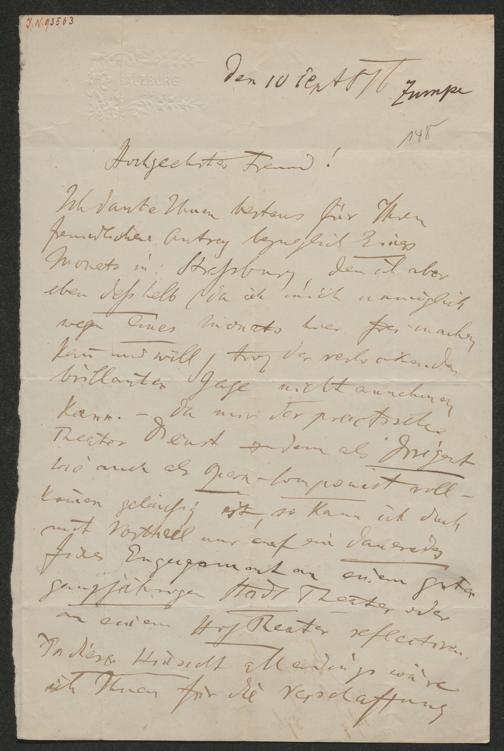 J.N. 93563
Den 10 Sept 876
Zumpe
148
Hochgeehrter Freund!
Ich danke Ihnen bestens für Ihren
freundlichen Antrag bezüglich Eines
Monats in Strassburg, den ich aber
eben desshalb, da ich mich unmöglich
wegen Eines Monats hier frei machen
kann und will, trotz der verlockenden
brillanten Gage nicht annehmen
kann. – Da mir der practische
Theater Dienst als Dirigent
wie auch als Opern-Componist voll-
kommen geläufig ist, so kann ich doch
mit Vortheil nur auf ein dauerndes
fixes Engagement an einem guten
ganzjährigen Stadt Theater oder
an einem Hof Theater reflectiren.
In dieser Hinsicht allerdings wäre
ich Ihnen für die Verschaffung